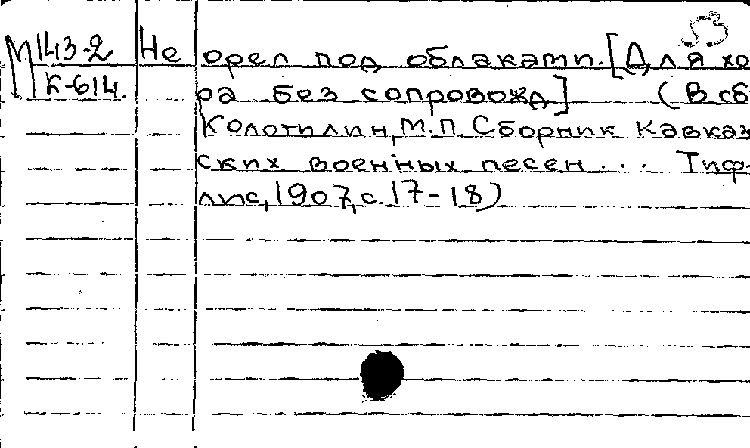 53
М 143-2 Не орел под облаками. [Для хо
К-614. ра без сопровожд] (В сб
Колотилин, М.П. Сборник Кавказ
ских военных песен... Тиф-
лис, 1907, с. 17-18)